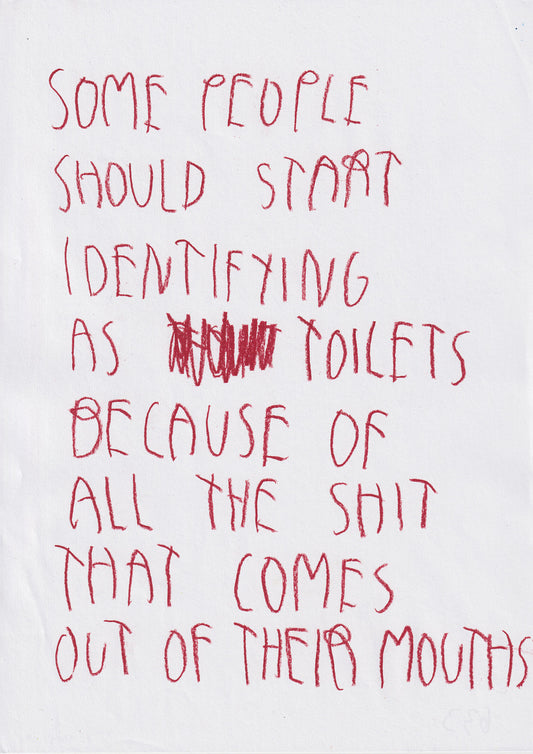 SOME PEOPLE
SHOULD START
IDENTIFYING
AS TOILETS
BECAUSE OF
ALL THE SHIT
THAT COMES
OUT OF THEIR MOUTHS